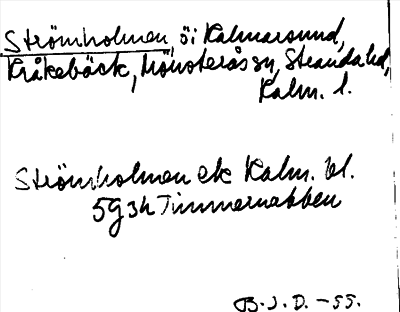 Strömholmen, ö i Kalmarsund,
Kråkebäck, Mönsterås sn, Stranda hd,
Kalm. l.
Strömholmen ek Kalm. bl.
5g3h Timmernabben
B.J.D. -55.